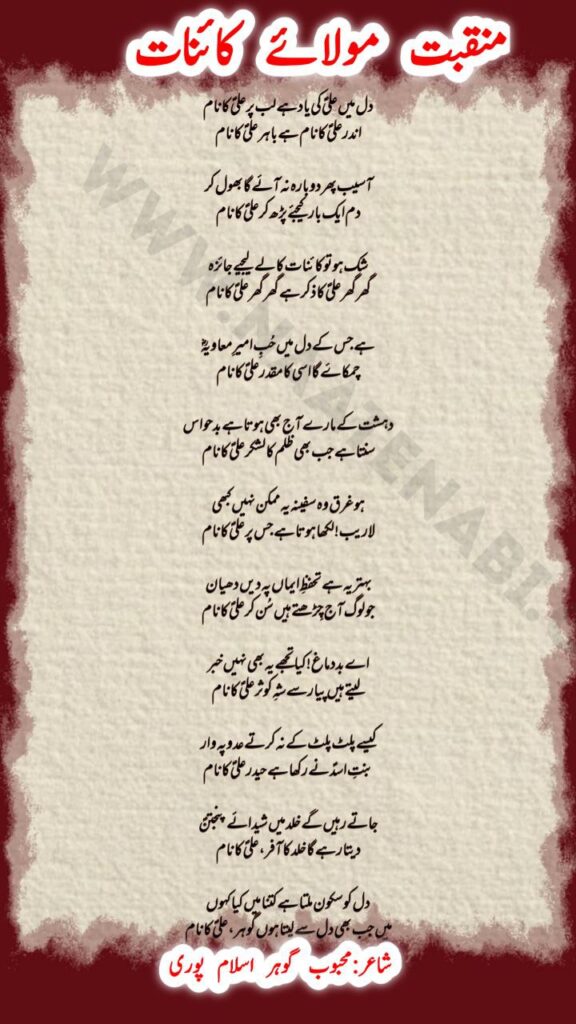 منقبت مولائے کائنات
دل میں علیؑ کی یاد ہے لب پر علیؑ کا نام
اندر علیؑ کا نام ہے باہر علیؑ کا نام
آسیب پھر دوبارہ نہ آئے گا بھول کر
دم ایک بار کیجئے پڑھ کر علیؑ کا نام
شک ہو تو کائنات کا لے لیجیے جائزہ
گھر گھر علیؑ کا ذکر ہے گھر گھر علیؑ کا نام
ہے جس کے دل میں حُبِ امیرِ معاویہؓ
چمکائے گا اسی کا مقدر علیؑ کا نام
دہشت کے مارے آج بھی ہوتا ہے بدحواس
سنتا ہے جب بھی ظلم کا لشکر علیؑ کا نام
ہو غرق وہ سفینہ یہ ممکن نہیں کبھی
لاریب! لکھا ہوتا ہے جس پر علیؑ کا نام
بہتر یہ ہے تحفظِ ایماں پہ دیں دھیان
جو لوگ آج چڑھتے ہیں سُن کر علیؑ کا نام
اے بد دماغ! کیا تجھے یہ بھی نہیں خبر
لیتے ہیں پیار سے شہِ کوثر علیؑ کا نام
کیسے پلٹ پلٹ کے نہ کرتے عدو پہ وار
بنتِ اسدؓ نے رکھا ہے حیدر علیؑ کا نام
جاتے رہیں گے خلد میں شیدائے پنجتنؑ
دیتا رہے گا خلد کا آفر، علیؑ کا نام
دل کو سکون ملتا ہے کتنا میں کیا کہوں
میں جب بھی دل سے لیتا ہوں گوہر، علیؑ کا نام
شاعر: محبوب گوہر اسلام پوری